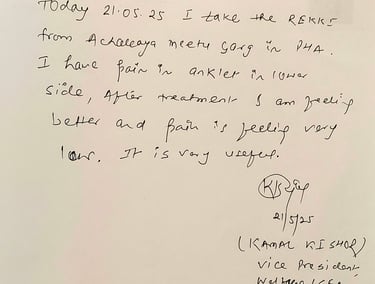 Today 21.05.25 I take the REKKI
from Achaleaya meetu Garg in PHA.
I have pain in anklet in lower
side, After treatment I am feeling
better and pain is feeling very
low. It is very useful.
21/5/25
(KAMAL KISHOR)
vice President,